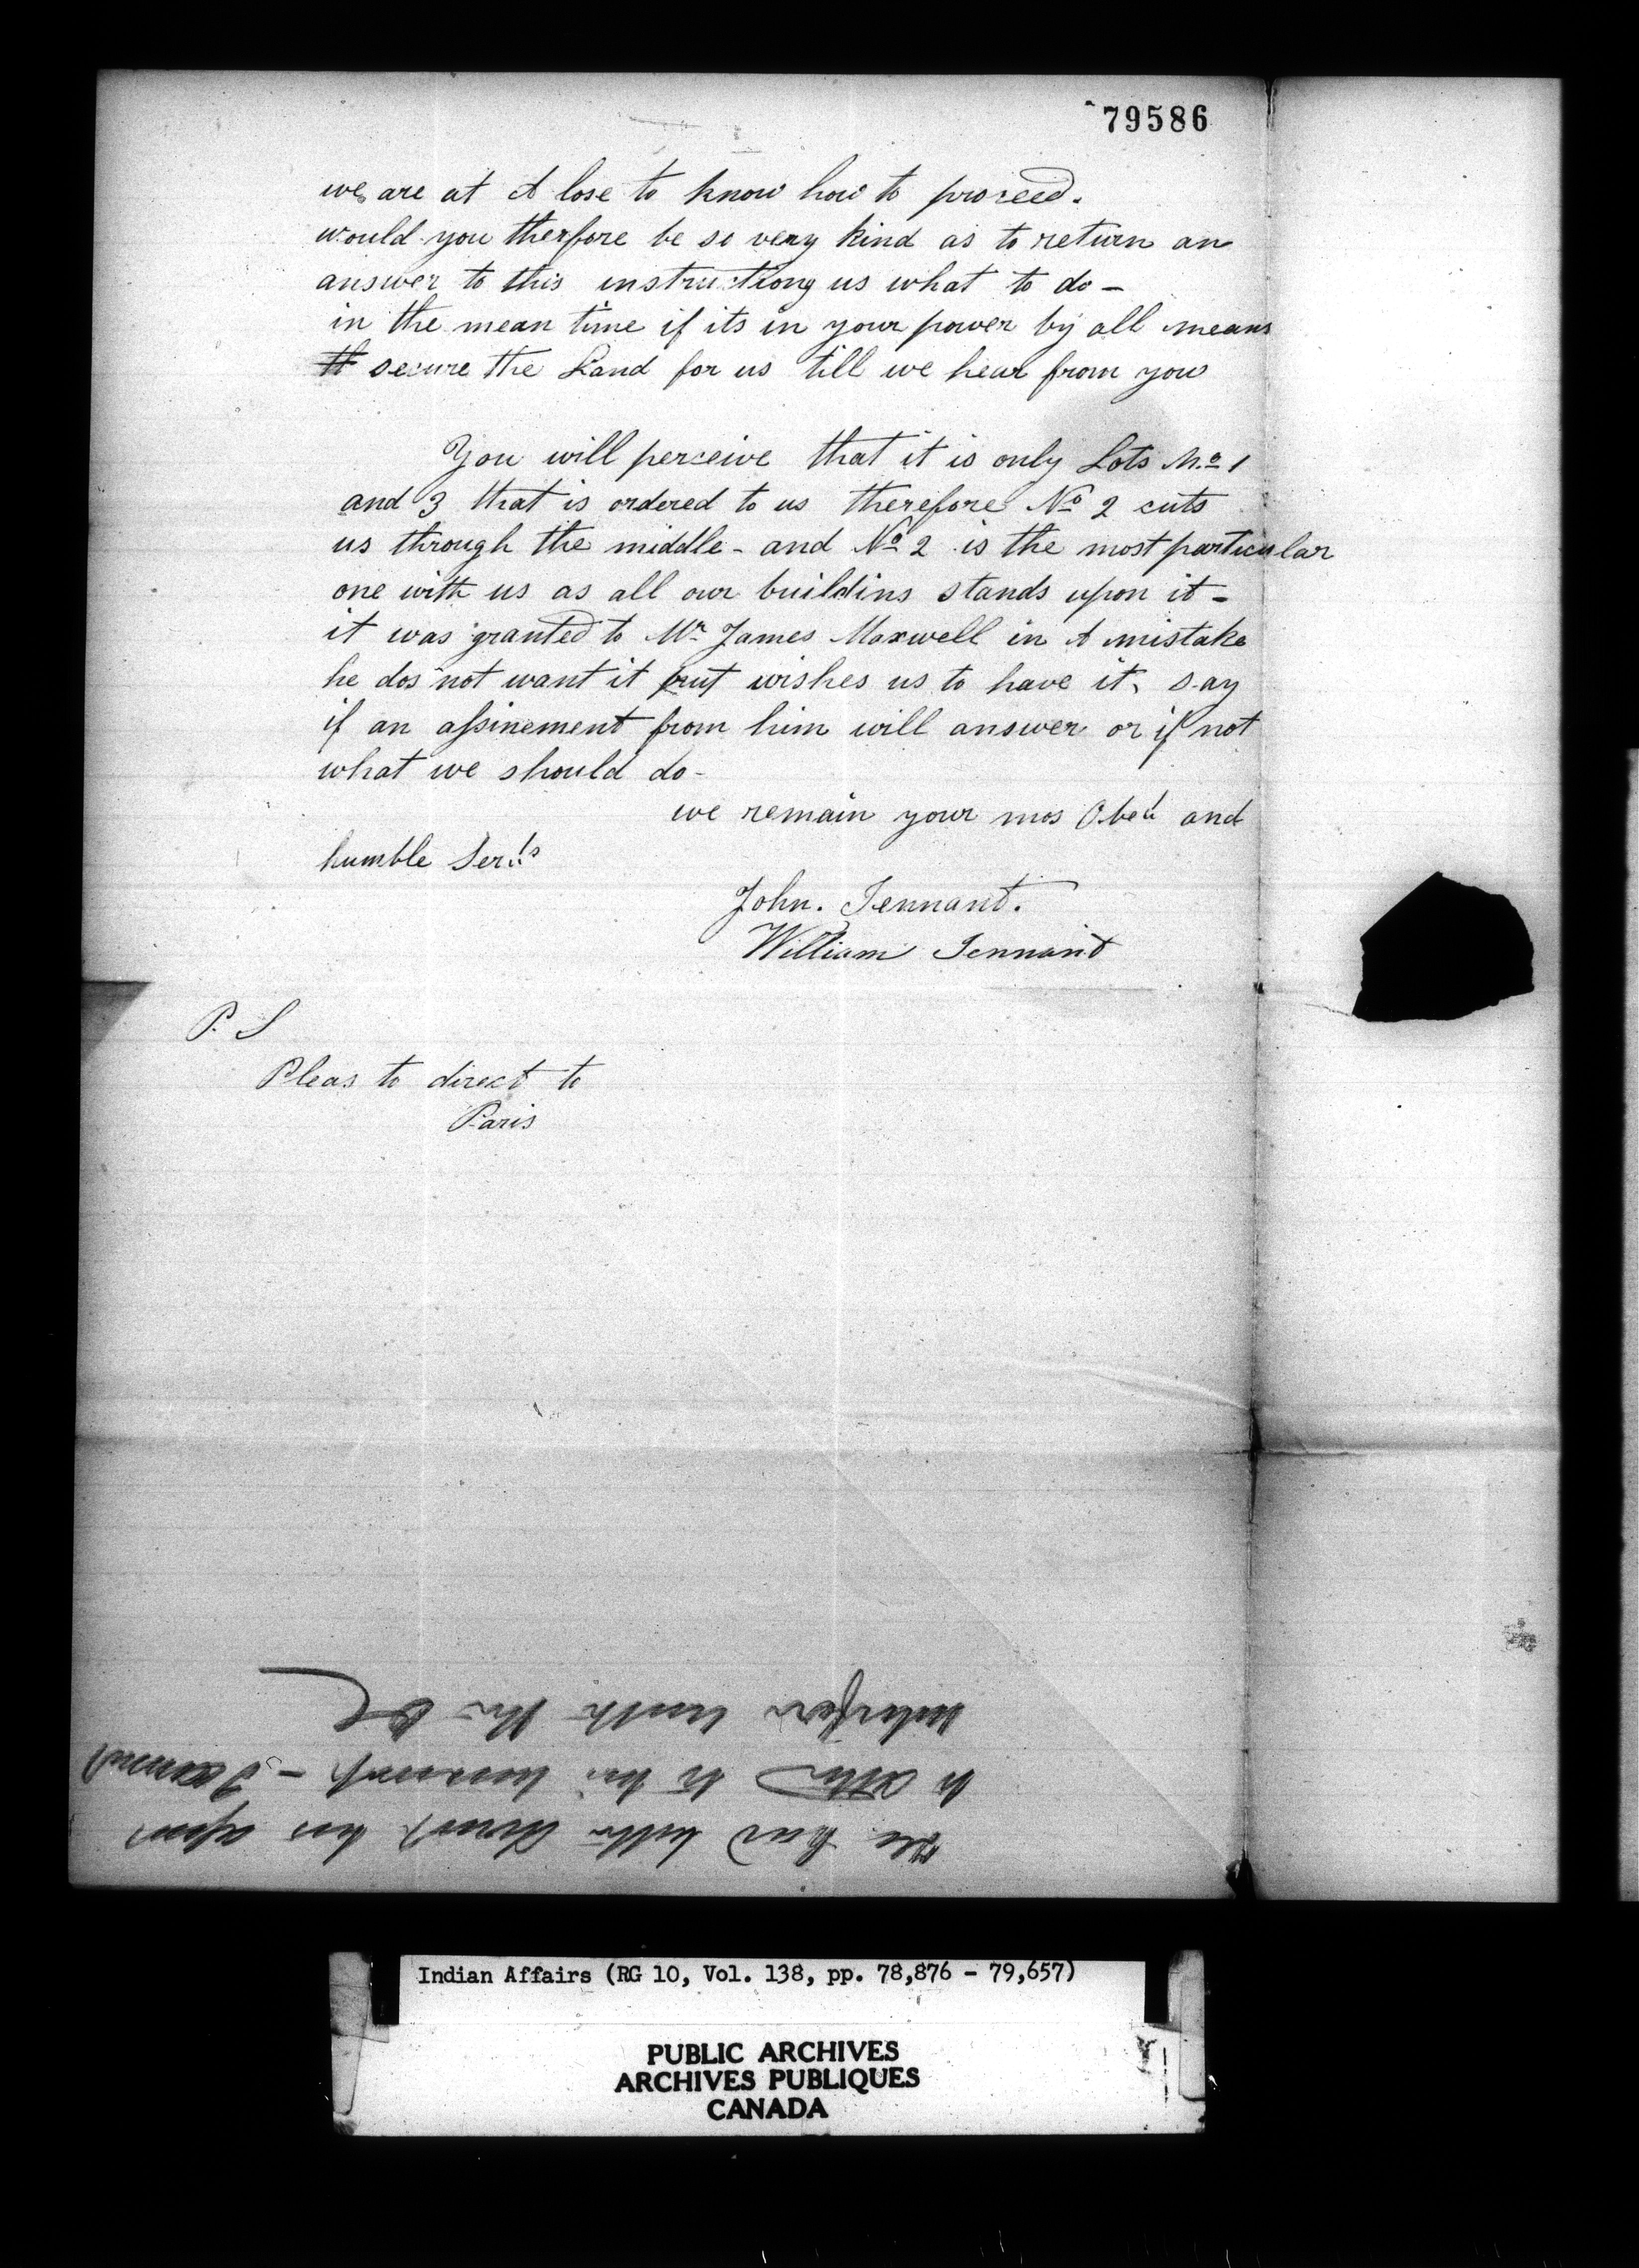 79586
we are at A lose to know how to proceed.
would you therfore be so very kind as to return an
answer to this instructiong us what to do -
in the mean time if its in your power by all means
secure the Land for us till we hear from you
You will perceive that it is only Lots No 1
and 3 that is ordered to us therefore No 2 cuts
us through the middle - and No 2 is the most particular
one with us as all our buildins stands upon it -
it was granted to Mr James Maxwell in A mistake
he dos not want it but wishes us to have it, say
if an assinement from him will answer or if not
what we should do -
we remain your mos Obedt and
humble Servts
John. Tennant.
William Tennant
P. S
Pleas to direct to
Paris
had better
to
interfere with the
Indian Affairs (RG 10, Vol. 138, pp. 78,876 - 79,657)
PUBLIC ARCHIVES
ARCHIVES PUBLIQUES
CANADA